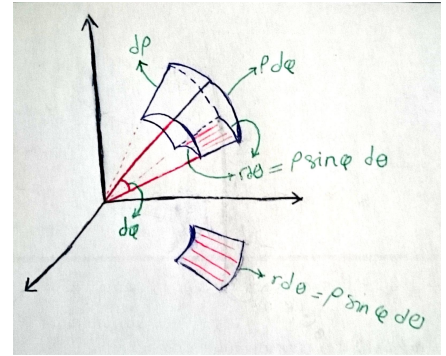 dρ
ρdφ
rdθ = ρsinφ dθ
dφ
rdθ = ρ sinφ dθ